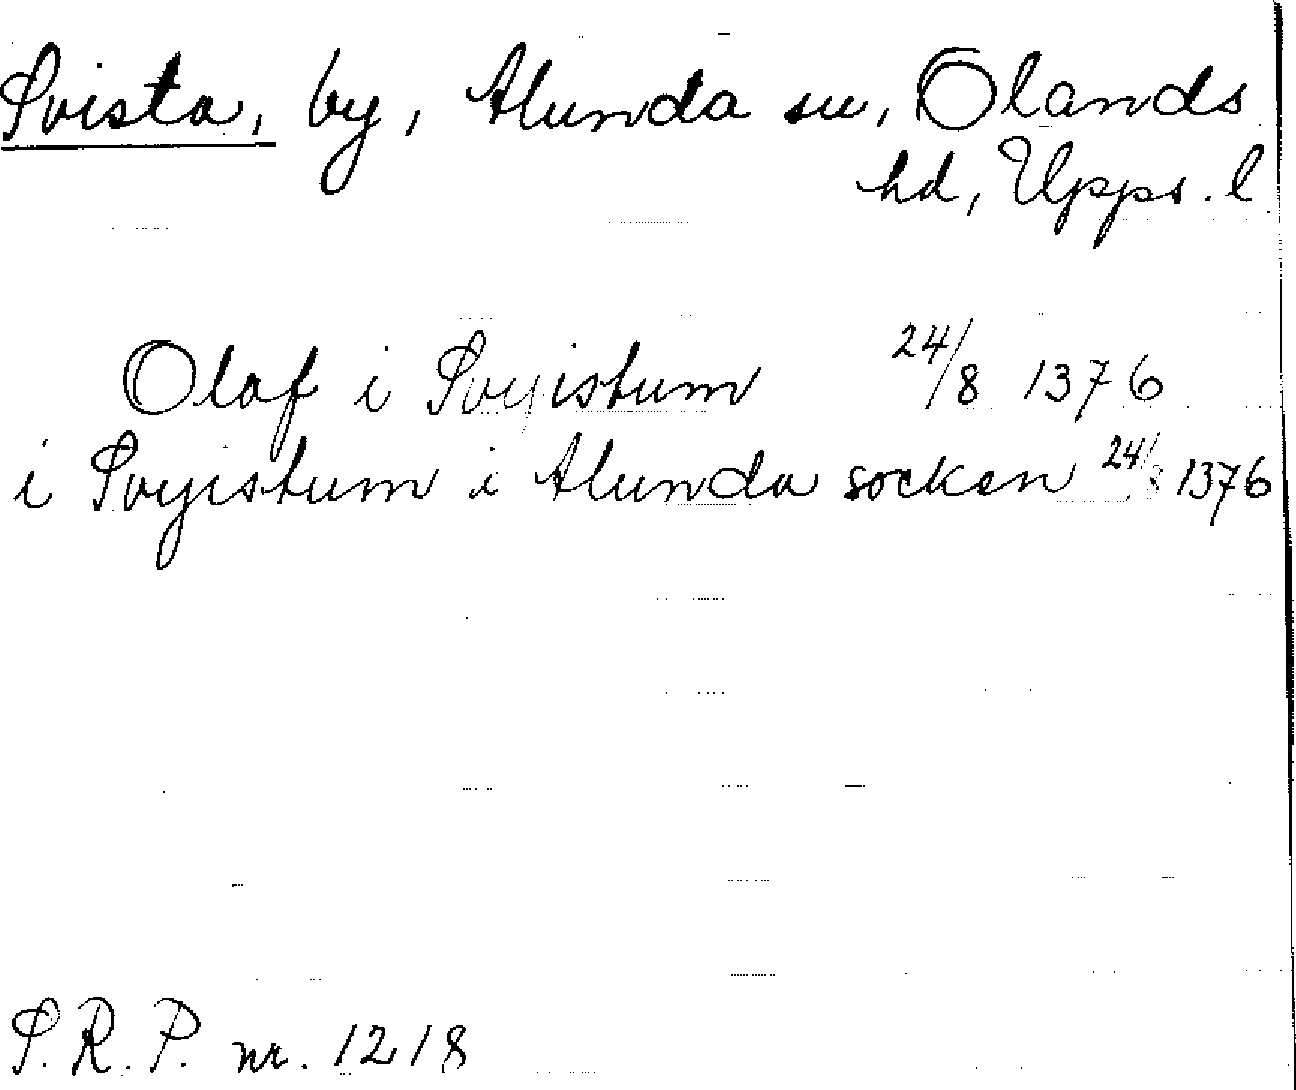 Svista, by, Alunda sn, Olands
hd, Upps. l.
Olaf i Svyistum 24/8 1376
i Svyistum i Alunda socken 24/8 1376
S.R.P. nr. 1218